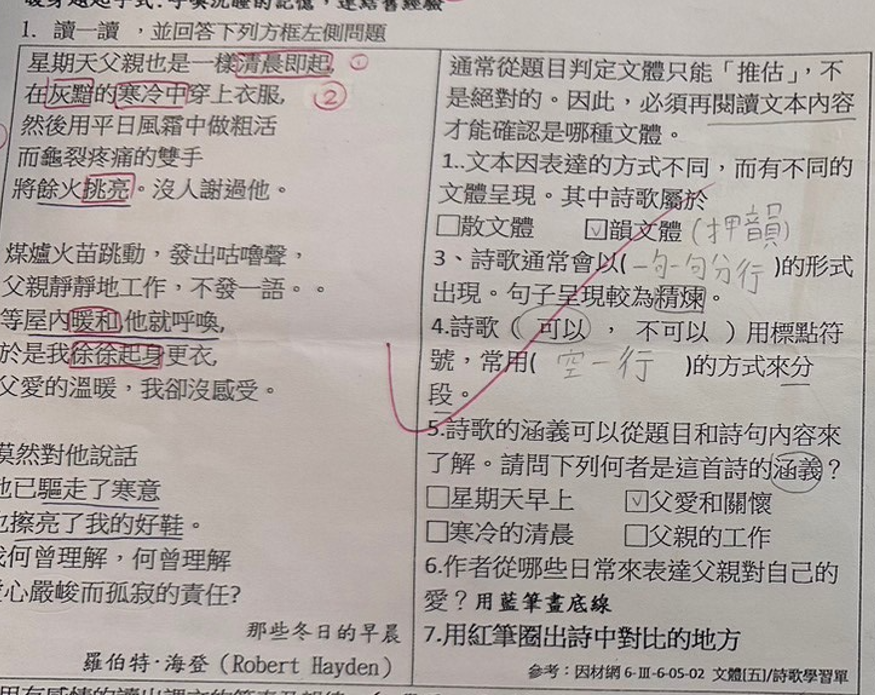 暖身題起手式：呼喚沉睡的記憶，連結舊經驗
1. 讀一讀 ，並回答下列方框左側問題
星期天父親也是一樣清晨即起, ①
在灰黯的寒冷中穿上衣服, ②
然後用平日風霜中做粗活
而龜裂疼痛的雙手
將餘火挑亮。沒人謝過他。
煤爐火苗跳動，發出咕嚕聲，
父親靜靜地工作，不發一語。。
等屋內暖和,他就呼喚,
於是我徐徐起身更衣,
父愛的溫暖，我卻沒感受。
漠然對他說話
他已驅走了寒意
也擦亮了我的好鞋。
我何曾理解，何曾理解
愛心嚴峻而孤寂的責任?
那些冬日的早晨
羅伯特·海登（Robert Hayden）
通常從題目判定文體只能「推估」，不
是絕對的。因此，必須再閱讀文本內容
才能確認是哪種文體。
1..文本因表達的方式不同，而有不同的
文體呈現。其中詩歌屬於
□散文體 ☑韻文體 (押韻)
3、詩歌通常會以(一句一句分行)的形式
出現。句子呈現較為精煉。
4.詩歌（ 可以 ， 不可以 ）用標點符
號，常用( 空一行 )的方式來分
段。
5.詩歌的涵義可以從題目和詩句內容來
了解。請問下列何者是這首詩的涵義？
□星期天早上 ☑父愛和關懷
□寒冷的清晨 □父親的工作
6.作者從哪些日常來表達父親對自己的
愛？用藍筆畫底線
7.用紅筆圈出詩中對比的地方
參考：因材網 6-Ⅲ-6-05-02 文體(五)/詩歌學習單